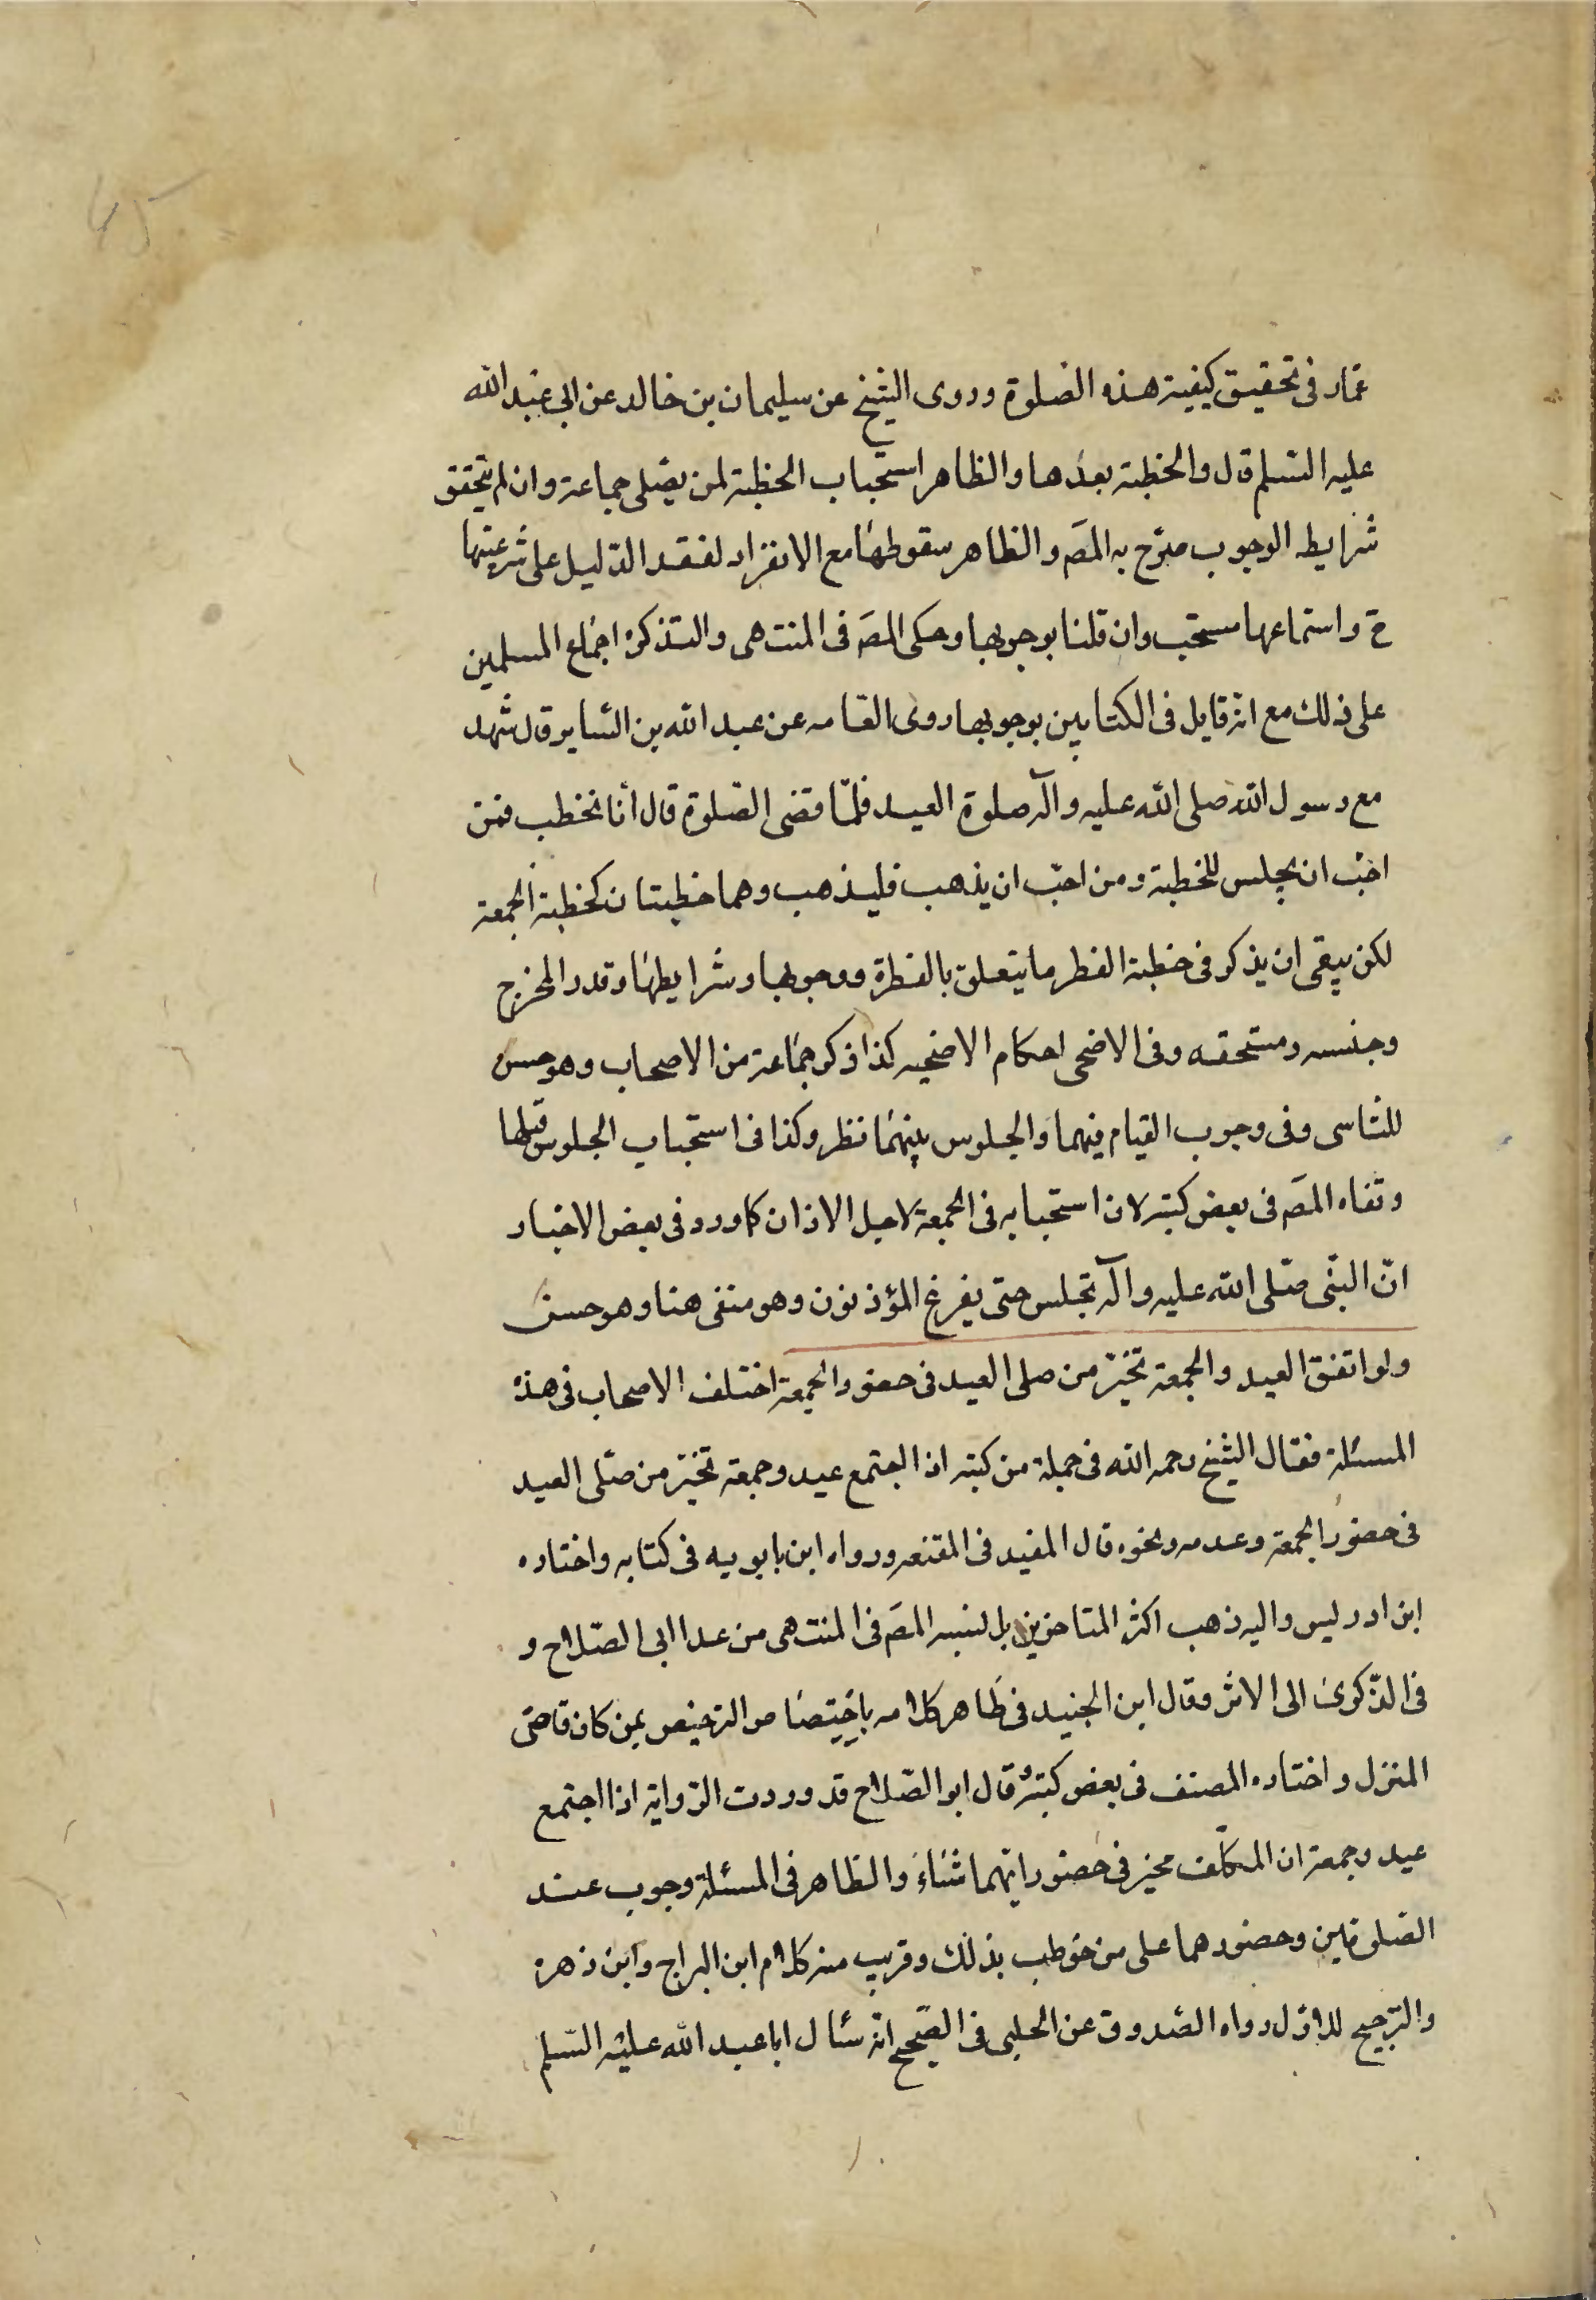 عمار فى تحقيق كيفية هذه الصلوة وروى الشيخ عن سليمان بن خالد عن ابى عبد الله
عليه السلم قال والخطبة بعدها والظاهر استحباب الخطبة لمن يصلى جماعة وان لم يتحقق
شرايط الوجوب صرّح به المصَ والظاهر سقوطها مع الانفراد لفقد الدليل على شرعيتها
ح واستماعها مستحب وان قلنا بوجوبها وحكى المصَ فى المنتهى والتذكرة اجماع المسلمين
على ذلك مع انه قايل فى الكتابين بوجوبها روى العامه عن عبد الله بن الساير قال شهد
مع رسول الله صلى الله عليه وآله صلوة العيد فلمّا قضى الصّلوة قال أنا نخطب فمن
احبّ ان يجلس للخطبة ومن احبّ ان يذهب فليذهب وهما خطبتان كخطبة الجمعة
لكن يبقى ان يذكر فى خطبة الفطر ما يتعلق بالفطرة ووجوبها وشرايطها وقدر المخرج
وجنسه ومستحقه وفى الاضحى احكام الاضحيه كذا ذكر جماعة من الاصحاب وهو حسن
للتاسى وفى وجوب القيام فيهما والجلوس بينهما نظر وكذا فى استحباب الجلوس قبلها
ونفاه المصَ فى بعض كتبه لان استحبابه فى الجمعة لاجل الاذان كما ورد فى بعض الاخبار
انّ النبّى صّلى الله عليه وآله تجلس حتى يفرغ المؤذنون وهو منفى هنا وهو حسن
ولو اتفق العيد والجمعة تخيّر من صلى العيد فى حضور الجمعة اختلف الاصحاب فى هذه
المسئلة فقال الشيخ رحمه الله فى جملة من كتبه اذا اجتمع عيد وجمعة تخيّر من صلّى العيد
فى حضور الجمعة وعدمه ونحوه قال المفيد فى المقنعه ورواه ابن بابويه فى كتابه واختاره
ابن ادريس واليه ذهب اكثر المتاخرين بل نسبه المصَ فى المنتهى من عدا ابى الصّلاح و
فى الذّكرى الى الاثر وقال ابن الجنيد فى ظاهر كلامه باختصاص الترخيص بمن كان قاصى
المنزل واختاره المصنف فى بعض كتبه قال ابو الصّلاح قد وردت الرّواية اذا اجتمع
عيد وجمعة ان المكلّف مخيّر فى حضور ايّهما شاء والظاهر فى المسئلة وجوب عند
الصّلوتين وحضورهما على من خوطب بذلك وقريب منه كلام ابن البراج وابن زهرة
والترجيح للاوّل رواه الصّدوق عن الحلبى فى الصّحيح انّه سئال ابا عبد الله عليه السّلم